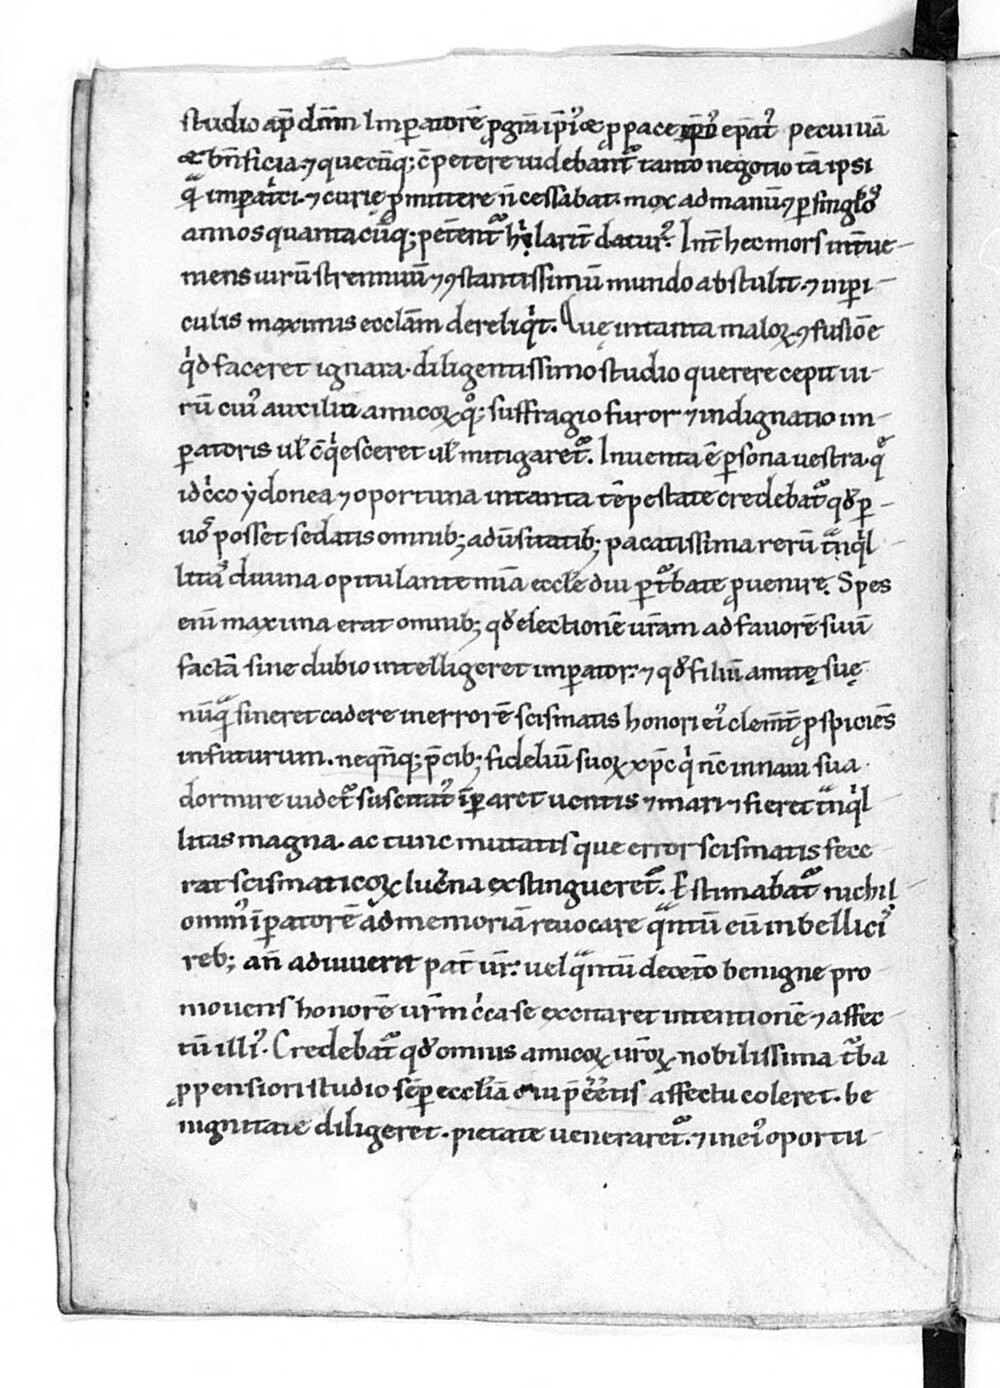 studio ap̄ dn̄m Imꝑatorē ꝓ gr̄a ip̄iꝰ æ ꝓ pace ep̄atꝰ pecunıā
æ bn̄ficia ⁊ quecūq; cp̄etere uidebant᷑ tanto negotio tā ipsi
qͣ̄ imꝑatͥci ⁊ curię ꝓmittere n̄ cessabat. mox ad manū ⁊ ꝑ singłoſ
annos quantacūq; petent᷑ hylarit̄ daturꝰ. Int̄ hec mors int̄ue-
niens uirū strennuū ⁊ ꝯstantissimū mundo abstulit. ⁊ in ꝑi-
culis maximis eccłam dereliqͥt. Quę in tanta maloꝝ ⁊fusiōe
qͥd faceret ignara. diligentissimo studio querere cepit ui-
rū cuiꝰ auxilio amicoꝝ qͦ; suffragio furor ⁊ indignatio im-
ꝑatoris uł ꝯqͥesceret uł mitigaret᷑. Inuenta ē ꝑsona uestra. qͤ
idcͥco ẏdonea ⁊ oportuna in tanta tēpestate credebat᷑ qd̵ ꝑ
uoſ posset sedatis omnib; adūsitatib; pacatissima rerū tͣnqͥl
litaſ diuina opitulante mīa eccłe diu ꝑt᷑bate ꝓuenire. Spes
enī maxima erat omnib; qd̵ electionē ur̄am ad fauorē suū
factā sine dubio intelligeret imꝑator. ⁊ qd̵ filiū amitę suę
nūqͣ̄ sineret cadere in errorē scismatis honori eiꝰ clem̄t̄ ꝓspiciēs
in futurum. neqn̄q; p̄cib; fideliū suoꝝ xp̄c qͥ nc̄ in naui sua
dormire uidet᷑ suscitatꝰ īꝑaret uentis ⁊ mari ⁊ fieret tͣnqͥl
litas magna. ac tunc mutatis que error scismatis fece
rat scismaticoꝝ lucͤna exstingueret᷑. Estimabat᷑ nichil
ominꝰ īꝑatorē ad memoriā reuocare qͣntū eū in belliciſ
reb; an̄ adiuuerit pat̄ ur̄. uel qͣntū deceto benigne pro
mouens honorē ur̄m cͥca se excitaret intentionē ⁊ affec
tū illiꝰ. Credebat᷑ qd̵ omnis amicoꝝ ur̄oꝝ nobilissima t᷑ba
ꝓpensiori studio sēꝑ eccłiā affectu coleret. be
nignitate diligeret. pietate ueneraret᷑. ⁊ in eiꝰ oportu